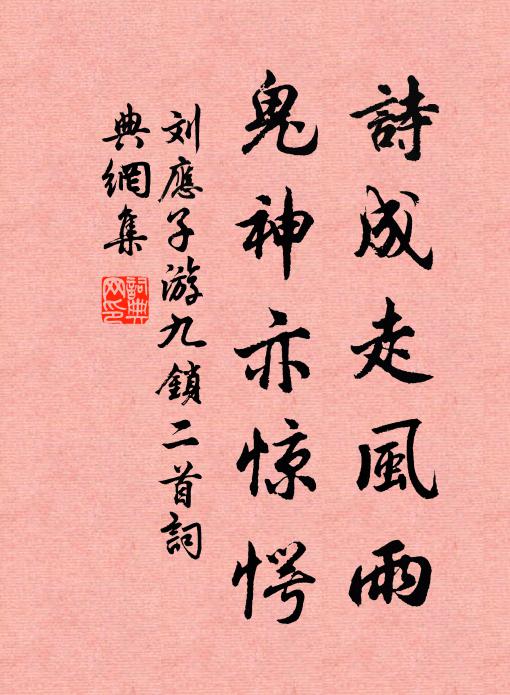 詩成走風雨
鬼神亦惊愕
刘應子游九鎖二首詞
典網集
詞典网印